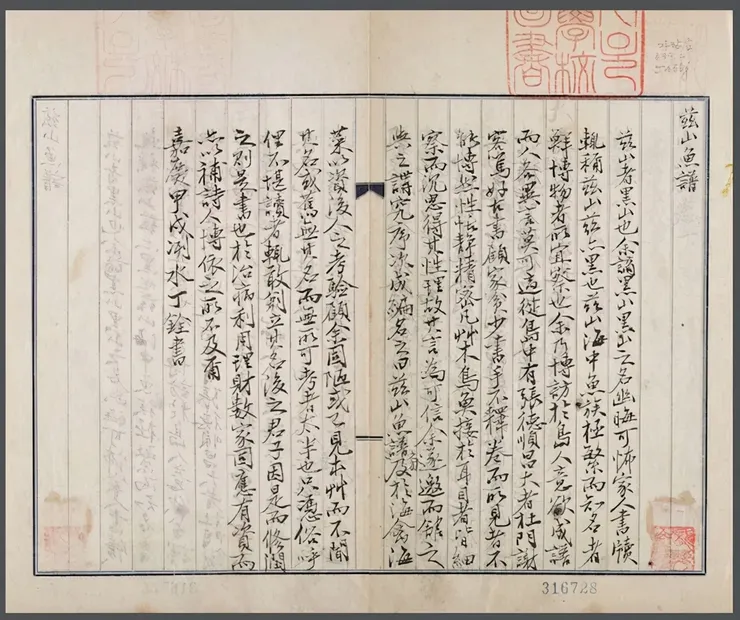 茲山魚譜
茲山者黑山也余謫黑山黑山之名幽晦可怖家人書牘
輒稱茲山茲亦黑也茲山海中魚族極繁而知名者
鮮博物者所宜察也余乃博訪於島人意欲成譜
而人各異言莫可適從島中有張德順昌大者杜門謝
客篤好古書顧家貧少書手不釋卷而所見者不
能博然性恬靜精密凡艸木鳥魚接於耳目者皆細
察而沉思得其性理故其言為可信余遂邀而館之
與之講究序次成編名之曰茲山魚譜及於海禽海
菜以資後人之考驗顧余固陋或已見本艸而不聞
其名或舊無其名而無所可考者太半也只憑俗呼
俚不堪讀者輒敢創立其名後之君子因是而修潤
之則是書也於治病利用理財數家固應有資而
亦以補詩人博依之所不及爾
嘉慶甲戌洌水丁銓書
316728